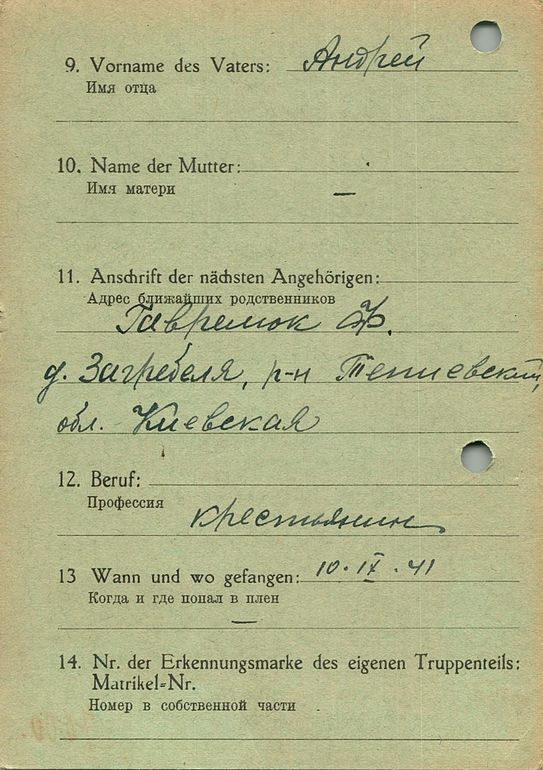 9. Vorname des Vaters: Андрей
Имя отца
10. Name der Mutter:
Имя матери —
11. Anschrift der nächsten Angehörigen:
Адрес ближайших родственников
Гавремок Ф.
д. Загребеля, р-н Тетиевский,
обл. Киевская
12. Beruf:
Профессия крестьянин
13 Wann und wo gefangen: 10.IX.41
Когда и где попал в плен
—
14. Nr. der Erkennungsmarke des eigenen Truppenteils:
Matrikel-Nr.
Номер в собственной части